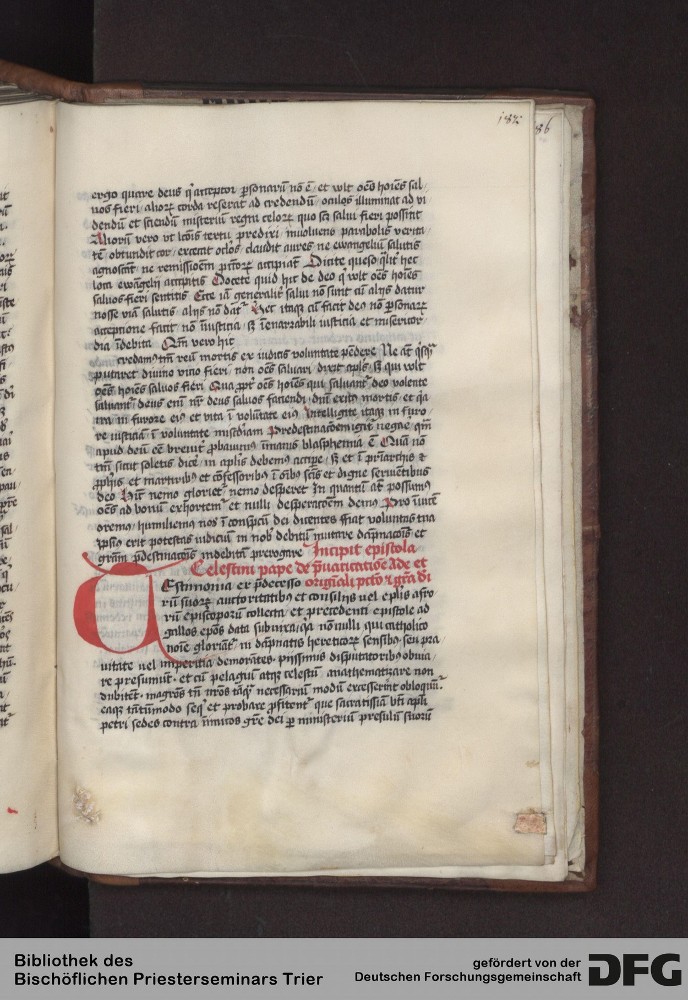 185
86
ergo quare deus q̇ acceptor ꝑsonarū nō ē / et wlt oēs hoīes sal/
uos fieri alioꝝ corda reserat ad credendū / oculos illuminat ad vi
dendū et sciendū misteriū regni celoꝝ quo sc̄i salui fieri possint
Alioru vero vt lōis tertii predixi inuoluens parabolis verita
tē obtundit cor / excecat oclōs claudit aures ne ewangeliū salutis
agnoscāt ne remissiōem pctōꝝ accipiāt Dicite queso q̇ lit hec
loca ewāgelij accipitis Docete quid hic de deo q̇ wlt oēs hoīes
saluos fieri sentitis Ecce iā generalit̓ salui nō sunt cū alijs datur
nosse viā salutis alijs nō dat᷑ Nec itaqꝫ cū facit deꝰ nō ꝑsonaꝝ
acceptione facit nō īiusticia sꝫ īenarrabili iusticia et misericor
dia īdebita Qm̄ vero hic
credamꝰ tm̄ reū mortis ex iudicis voluntate pēdere Ne aūt q̇sq̇
putaret diuino vicio fieri non oēs saluari dixit apl̄s sꝫ qui wlt
oēs hoīes saluos fieri Qua ꝓpt̓ oēs hoīes qui saluant᷑ deo volente
saluant᷑ deus enī nr̄ deus saluos faciendi / dnī exitꝰ mortis et q̇a
ira in furore eiꝰ et vita ī volūtate eiꝰ Intelligite itaqꝫ in furo/
re iusticiā ī voluntate misc̄diam Predestinacōem igit᷑ negae qm̄
apud deū eē breuit̓ ꝓbauimꝰ īmanis blasphemia ē Quā nō
tm̄ sicut soletis dice in aplis debemꝰ accipe sꝫ et ī pr̄iarchis ⁊
ꝓphis et martiribꝰ et cōfessoribꝰ ī oībꝰ sc̄tis et digne seruientibus
deo Hūc nemo gloriet᷑ nemo desperet In quantū at̄ possumꝰ
oēs ad bonū exhortem᷑ et nulli desperacōem demꝰ Pro īuicē
oremꝰ / humiliemꝰ nos ī conspc̄u dei dicentes ffiat voluntas tua
ipsiꝰ erit potestas iudiciū in nob debitū mutare dāpnacōis et
gr̄am p̄destinacōis indebitā prerogare Incipit epistola
Celestini pape de p̄uaricatiōe Ade et
originali pctō ⁊ gr̄a dī
TEstimonia ex p̄decesso
rū suoꝝ auctoritatibꝰ et consilijs vel eplis afro
rū episcoporū collecta / et precedenti epistole ad
gallos epōs data subnixa / q̇a nōnulli qui catholico
noīe gloriāt᷑ in dāpnatis hereticoꝝ sensibꝰ seu pra
uitate uel imperitia demorātes / piissimis disputatoribꝰ obuia/
re presumūt · et cū pelagiū atqꝫ celestiū anathematizare non
dubitēt · magr̄os tn̄ nr̄os tāq̇ necessariū modū excesserīt obloquūt᷑
eaqꝫ tātūmodo seq̇ et probare ꝓfitent᷑ que sacratissīa bt̄i apl̄i
petri sedes contra īimicos gr̄e dei ꝑ ministeriū presulū suorū
Bibliothek des
Bischöflichen Priesterseminars Trier
gefördert von der
Deutschen Forschungsgemeinschaft
DFG